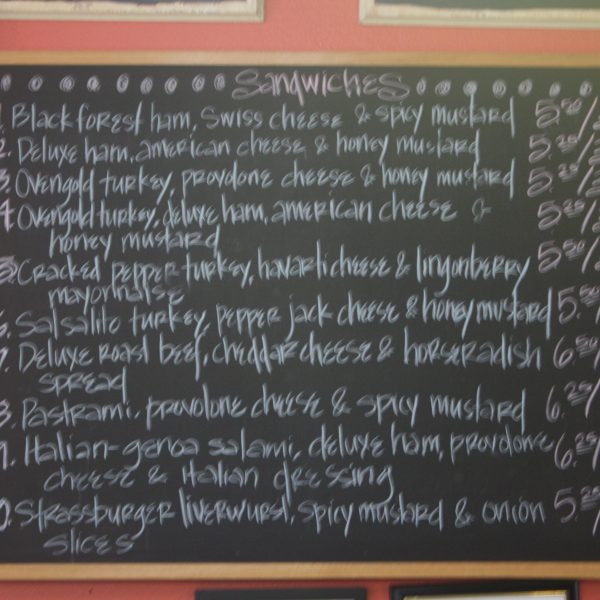 Sandwiches
1. Black forest ham, Swiss cheese & spicy mustard 5.50/
2. Deluxe ham, american cheese & honey mustard 5.25/
3. Ovengold turkey, provolone cheese & honey mustard 5.25/
4. Ovengold turkey, deluxe ham, american cheese & 5.25/
honey mustard
5. Cracked pepper turkey, havarti cheese & lingonberry 5.50/
mayonnaise
6. Salsalito turkey, pepper jack cheese & honey mustard 5.
7. Deluxe roast beef, cheddar cheese & horseradish 6.50
spread
8. Pastrami, provolone cheese & spicy mustard 6.25/
9. Italian-genoa salami, deluxe ham, provolone 6.25/
cheese & italian dressing
0. Strassburger liverwurst, spicy mustard & onion 5.25
slices